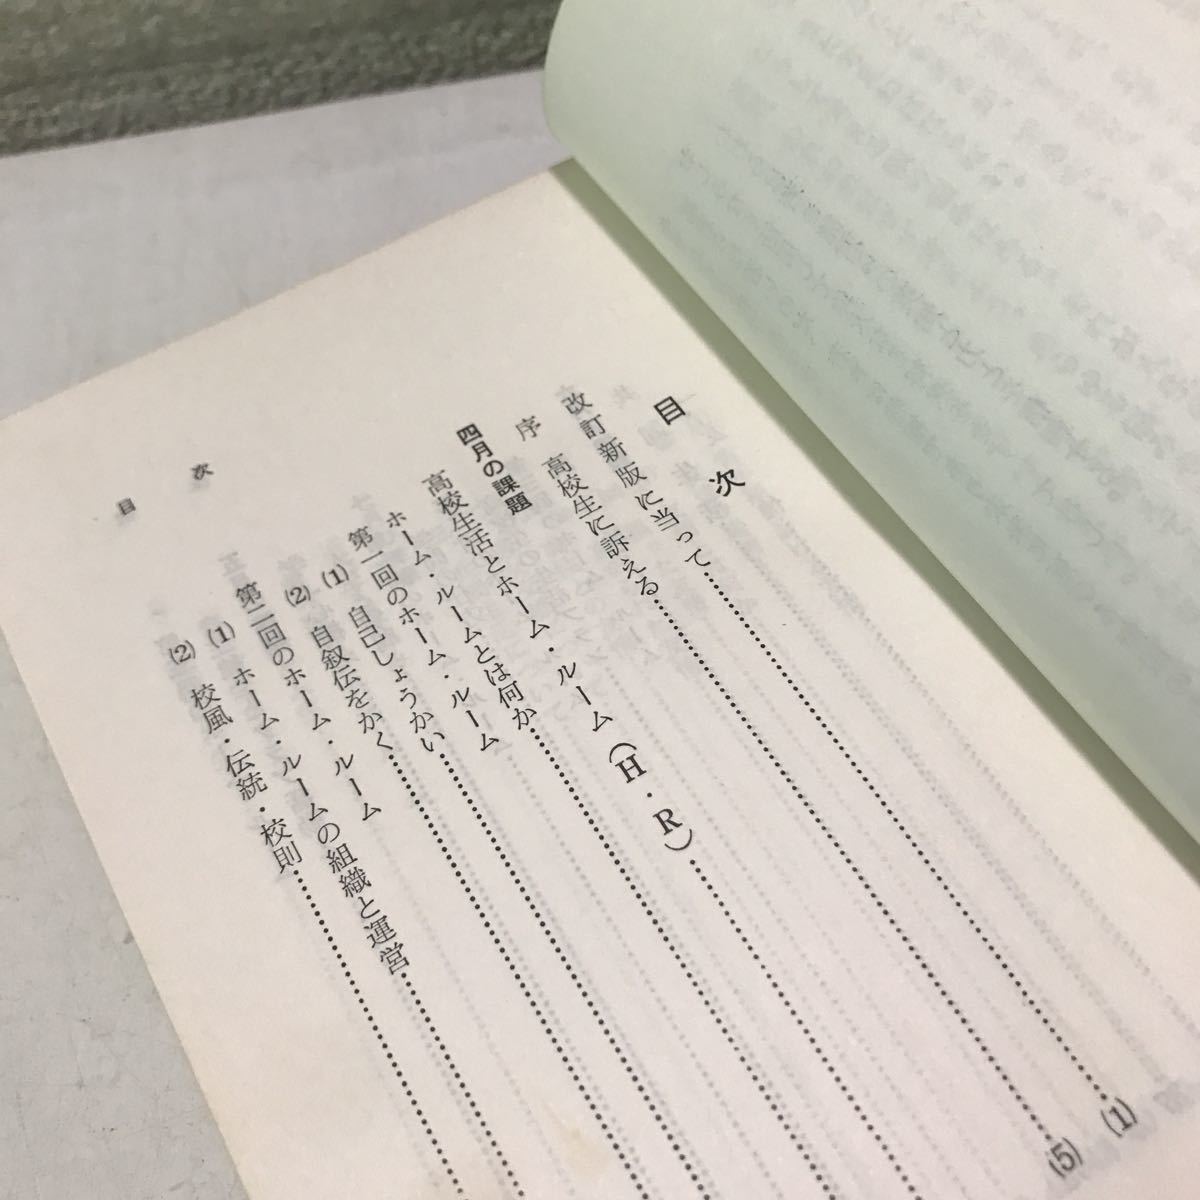 目次
改訂新版に当って…………(1)
序 高校生に訴える…………(5)
四月の課題
高校生活とホーム・ルーム(H・R)…………
ホーム・ルームとは何か…………
第一回のホーム・ルーム
(1) 自己しょうかい…………
(2) 自叙伝をかく…………
第二回のホーム・ルーム
(1) ホーム・ルームの組織と運営…………
(2) 校風・伝統・校則…………
目次